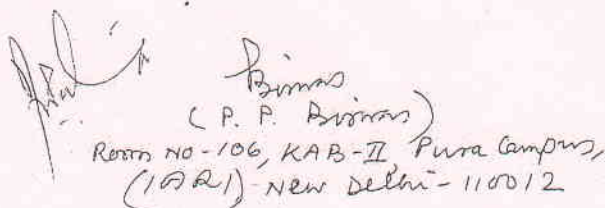 Biswas
(P. P. Biswas)
Room No-106, KAB-II, Pusa Campus,
(IARI)-New Delhi-110012